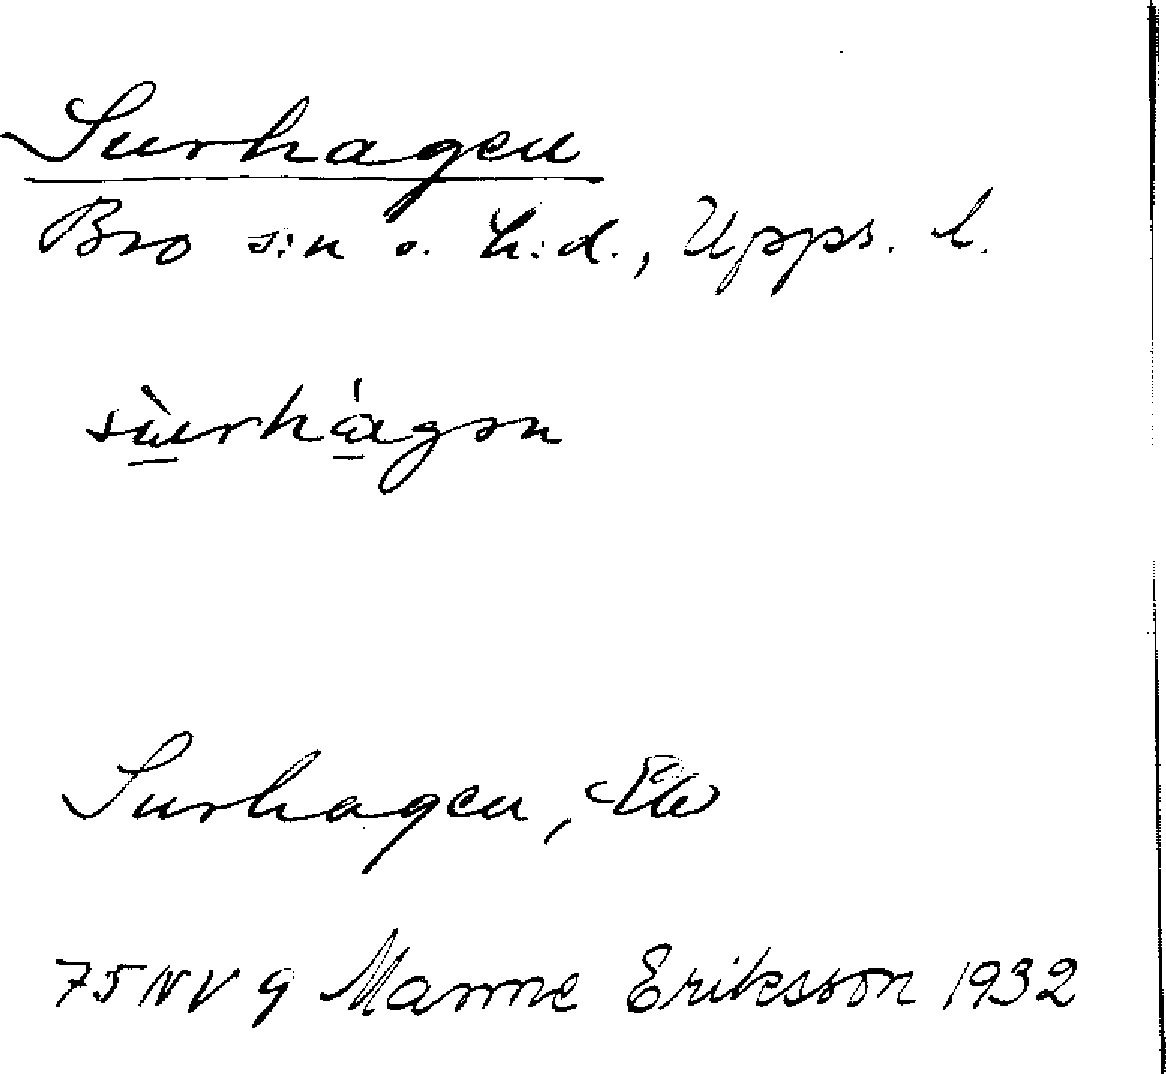 Surhagen
Bro s:n o. h:d., Upps. l.
sùrhágən
Surhagen, Ek
75 NV g Manne Eriksson 1932